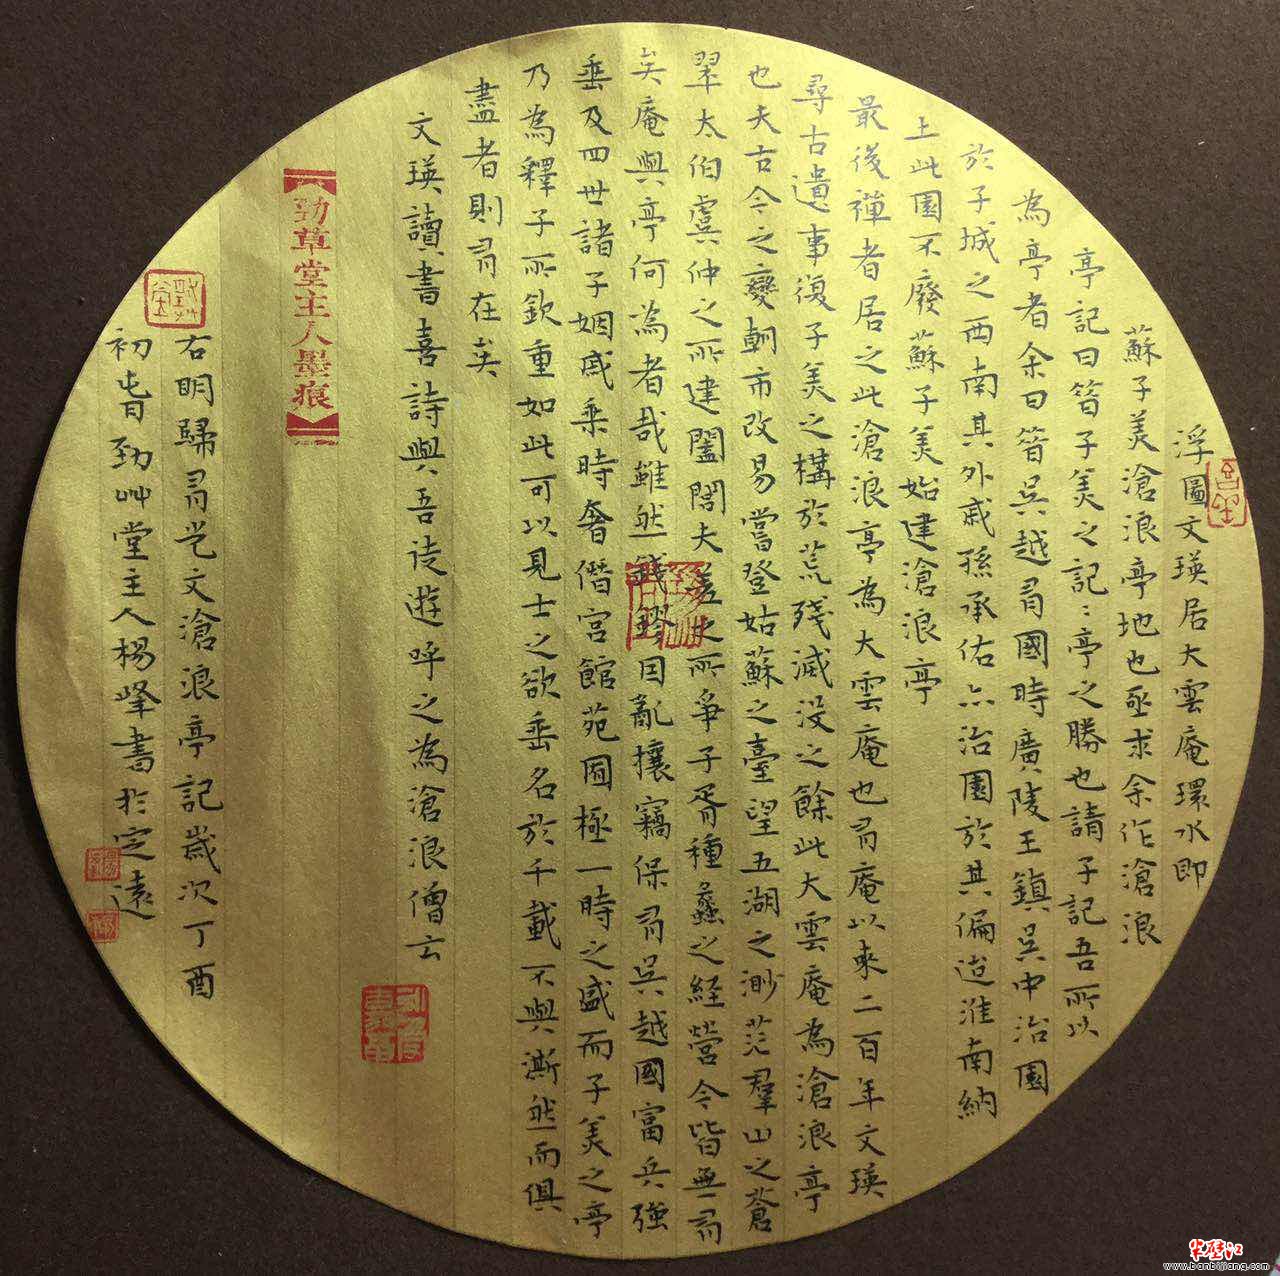 浮圖文瑛居大雲庵環水即
蘇子美滄浪亭地也亟求余作滄浪
亭記曰昝子美之記:亭之勝也請子記吾所以
為亭者余曰昝吳越有國時廣陵王鎮吳中治園
於子城之西南其外戚孫承佑亦治園於其偏迨淮南納
土此園不廢蘇子美始建滄浪亭
最後禪者居之此滄浪亭為大雲庵也有庵以來二百年文瑛
尋古遺事復子美之構於荒殘滅没之餘此大雲庵為滄浪亭
也夫古今之變朝市改易嘗登姑蘇之臺望五湖之渺茫羣山之蒼
翠太伯虞仲之所建闔閭夫差之所爭子胥種蠡之経營今皆無有
矣庵與亭何為者哉雖然錢鏐因亂攘竊保有吳越國富兵強
垂及四世諸子姻戚乘時奢僭宮館苑囿極一時之盛而子美之亭
乃為釋子所欽重如此可以見士之欲垂名於千載不與澌然而俱
盡者則有在矣
文瑛讀書喜詩與吾徒遊呼之為滄浪僧云
勁草堂主人墨痕
右明歸有光文滄浪亭記歲次丁酉
初春勁艸堂主人楊峰書於定遠
半壁江
www.banbijiang.com